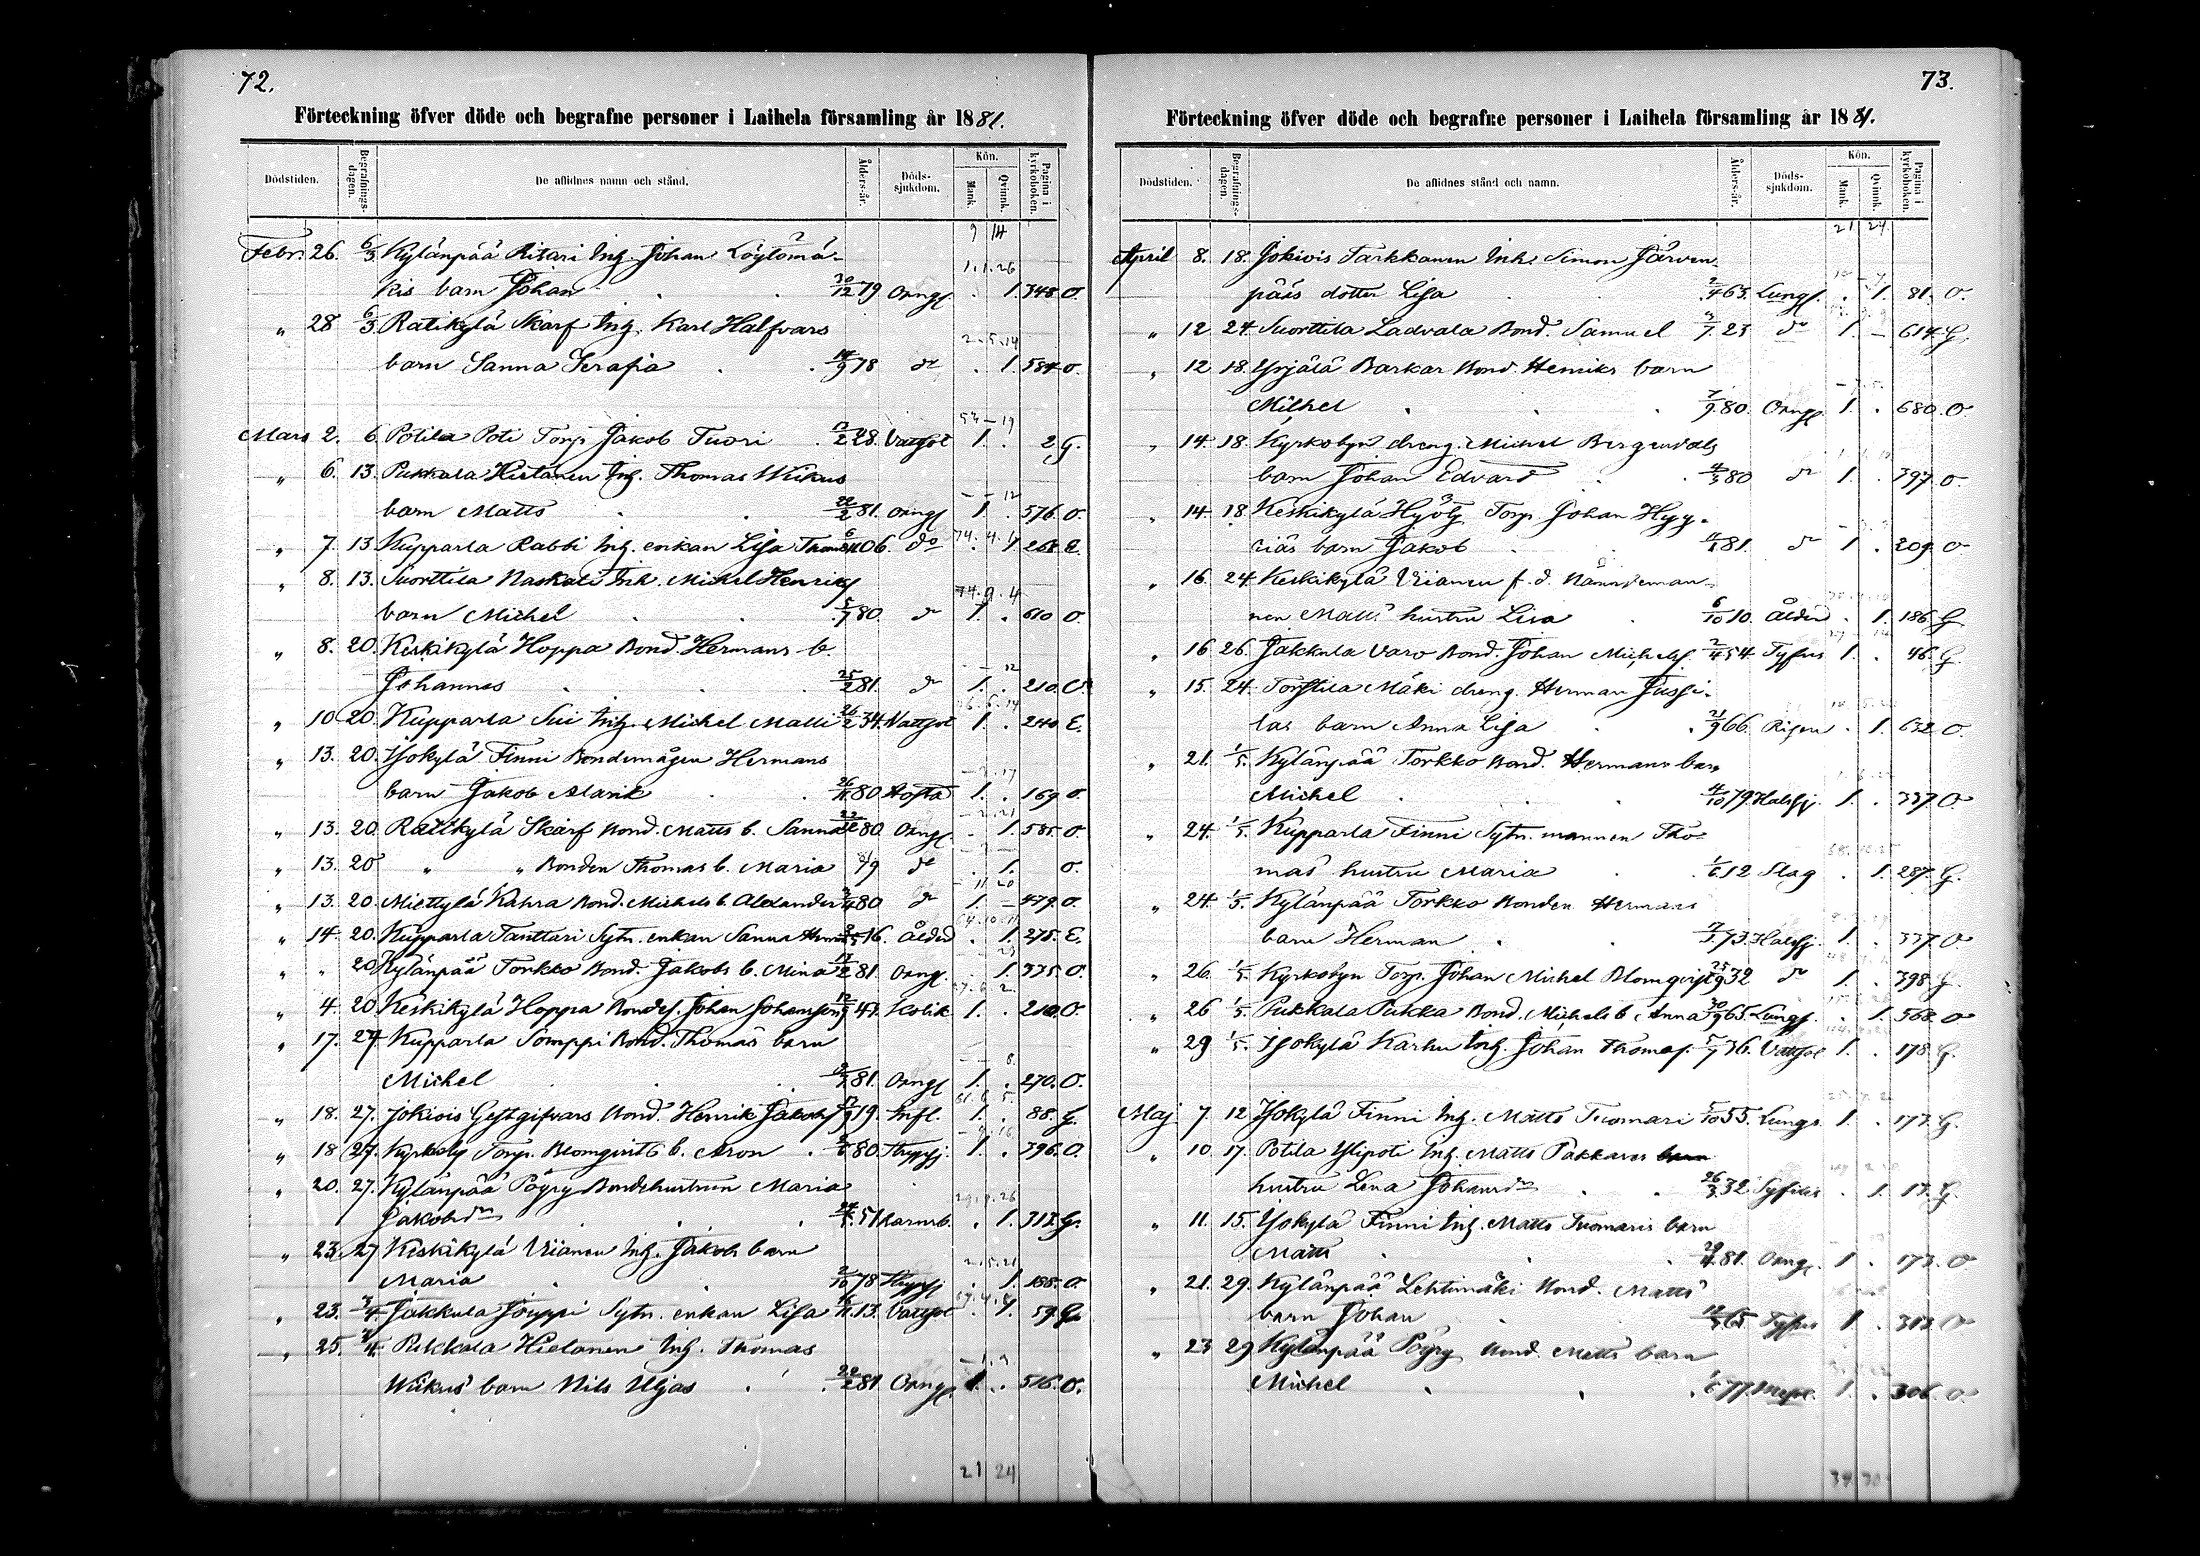 72.
Förteckning öfver döde och begrafne personer i Laihela församling år 1881.
Dödstiden. Begrafnings-dagen. De aflidnes namn och stånd. Ålders-år. Döds-sjukdom. Kön. Mank. Qvinnk. Pagina i kyrkoboken.
9 14
Febr. 26. 6/3 Kylänpää Ritari Inh. Johan Löytömä-
1.1.26
kis barn Johan 30/12 79 Oangf. . 1. 348 O.
" 28 6/3 Ratikylä Skarf Inh. Karl Halfvars
2.5.14
barn Sanna Serafia 14/9 78 do . 1. 584 O.
53 – 19
Mars 2. 6 Potila Poti Torp. Jakob Tuori 28. Vattsot 1. . 2 G.
" 6. 13. Pukkala Hietanen Inh. Thomas Wikus
– – 12
barn Matts 22/2 81. Oangf 1. . 576. O.
" 7. 13 Kupparla Rabbi Inh. enkan Lisa 06. do . 1 268 E.
" 8. 13. Suorttila Naskali Inh. Mickel Henriks
barn Michel 5/7 80. do 1. . 610 O.
" 8. 20. Keskikylä Hoppa Bond. Hermans b.
– – 12
Johannes 25/2 81. do 1. . 210. O
" 10 20. Kupparla Sui Inh. Michel Matti 26/2 34. Vattsot 1. . 240 E.
" 13. 20. Isokylä Finni Bondemågen Hermans
barn Jakob Alarik 26/11 80 Hosta 1. . 169 O.
" 13. 20. Ratikylä Skarf Bond. Matts b. Sanna 80. Oangf . 1. 585. O.
" 13. 20 " " Bonden Thomas b. Maria 79 do . 1. O.
– 11 20
" 13. 20 Miettylä Kahra Bond. Michels b. Alexander 80 do 1. – 479. O.
" 14. 20. Kupparla Tanttari Sytn. enkan Sanna 16. Ålded . 1. 275. E.
" " 20 Kylänpää Torkko Bond. Jakobs b. Mina 81. Oangf. . 1. 335. O.
" 4. 20 Keskikylä Hoppa Bondes. Johan Johansson 47. Kolik 1. . 210. O.
" 17. 27 Kupparla Somppi Bond. Thomas barn
– – 8.
Michel 81. Oangf 1. . 270. O.
" 18. 27. Jokiois Gestgifvars Bond. Henrik Jakobs 19. Infl. 1. . 88. G.
" 18 27. Kyrkoby Torp. Blomqvists b. Aron 80 Strypsj. 1. . 396. O.
" 20. 27. Kylänpää Pögry Bondehustrun Maria
29.9.26
Jakobsdr 51 Barnsb. . 1. 312. G.
" 23. 27 Keskikylä Viianen Inh. Jakobs barn
2.5.21
Maria 2/10 78 Strypsj . 1. 188. O.
" 23. 3/4. Jakkula Jouppi Sytn. enkan Lisa 13. Vattsot . 1. 59. G.
" 25. 3/4. Pukkala Hietanen Inh. Thomas
– 1. 9
Wikus barn Nils Uljas 22/2 81 Oangf. 1. . 576. O.
21 24
73.
Förteckning öfver döde och begrafne personer i Laihela församling år 1881.
Dödstiden. Begrafnings-dagen. De aflidnes stånd och namn. Ålders-år. Döds-sjukdom. Kön. Mank. Qvinnk. Pagina i kyrkoboken.
21 24
April 8. 18. Jokiois Tarkkanen Inh. Simon Järven-
pääs dotter Lisa 2/4 63. Lungs. . 1. 81. O.
" 12 24. Suorttila Ladvala Bond. Samuel 23 do 1. – 614 G.
" 12 18. Yrjälä Barkar Bond. Henriks barn
Mikhel 7/9 80. Oangf. 1. . 680. O
" 14. 18. Kyrkobyn dreng. Michel Bergendals
barn Johan Edvard 4/3 80 do 1. . 397. O.
" 14. 18 Keskikylä Hyöty Torp. Johan Hyy-
tiäs barn Jakob 81. do 1 . 209. O
" 16. 24. Keskikylä Viianen f.d. Nämndeman-
nen Matts hustru Lisa 6/10 10. Ålded . 1. 186. G.
" 16 26. Jakkula Varo Bond. Johan Michelss. 2/4 54. Tyfus 1. . 46. G.
" 15. 24. Torstila Mäki dreng. Herman Jussi-
las barn Anna Lisa 21/9 66. Risen . 1. 632 O.
" 21. 1/5. Kylänpää Torkko Bond. Hermans barn
Michel 4/10 79. Halssj. 1. . 337. O
" 24. 1/5. Kupparla Finni Sytn. mannen Tho-
mas hustru Maria 1/6 12 Slag . 1. 287. G.
" 24. 1/5. Kylänpää Torkko Bonden Hermans
barn Herman 73. Halssj. 1. . 337. O
" 26. 1/5. Kyrkobyn Torp. Johan Michel Blomqvist 25/9 32 do 1. . 398. G.
" 26 1/5. Pukkala Pukka Bond. Michels b. Anna 30/9 65. Lungs. . 1. 568. O
" 29 1/5. Isokylä Karhu Inh. Johan Thomas. 5/7 36. Vattsot 1. . 178. G.
Maj 7. 12 Isokylä Finni Inh. Matts Tuomari 5/10 55. Lungs. 1. . 173. G.
" 10. 17. Potila Ylipoti Inh. Matts Pakkares barn
hustru Lena Johansdr 26/3 32. Syfilis . 1. 13. G.
" 11. 15. Isokylä Finni Inh. Matts Tuomaris barn
Matts 29/4 81. Oangf. 1 . 173. O
" 21. 29. Kylänpää Lehtimäki Bond. Matts
barn Johan 65. Tyfus 1 . 313. O
" 23 29 Kylänpää Pögry Bond. Matts barn
Michel 1/6 77. 1. . 306. O.